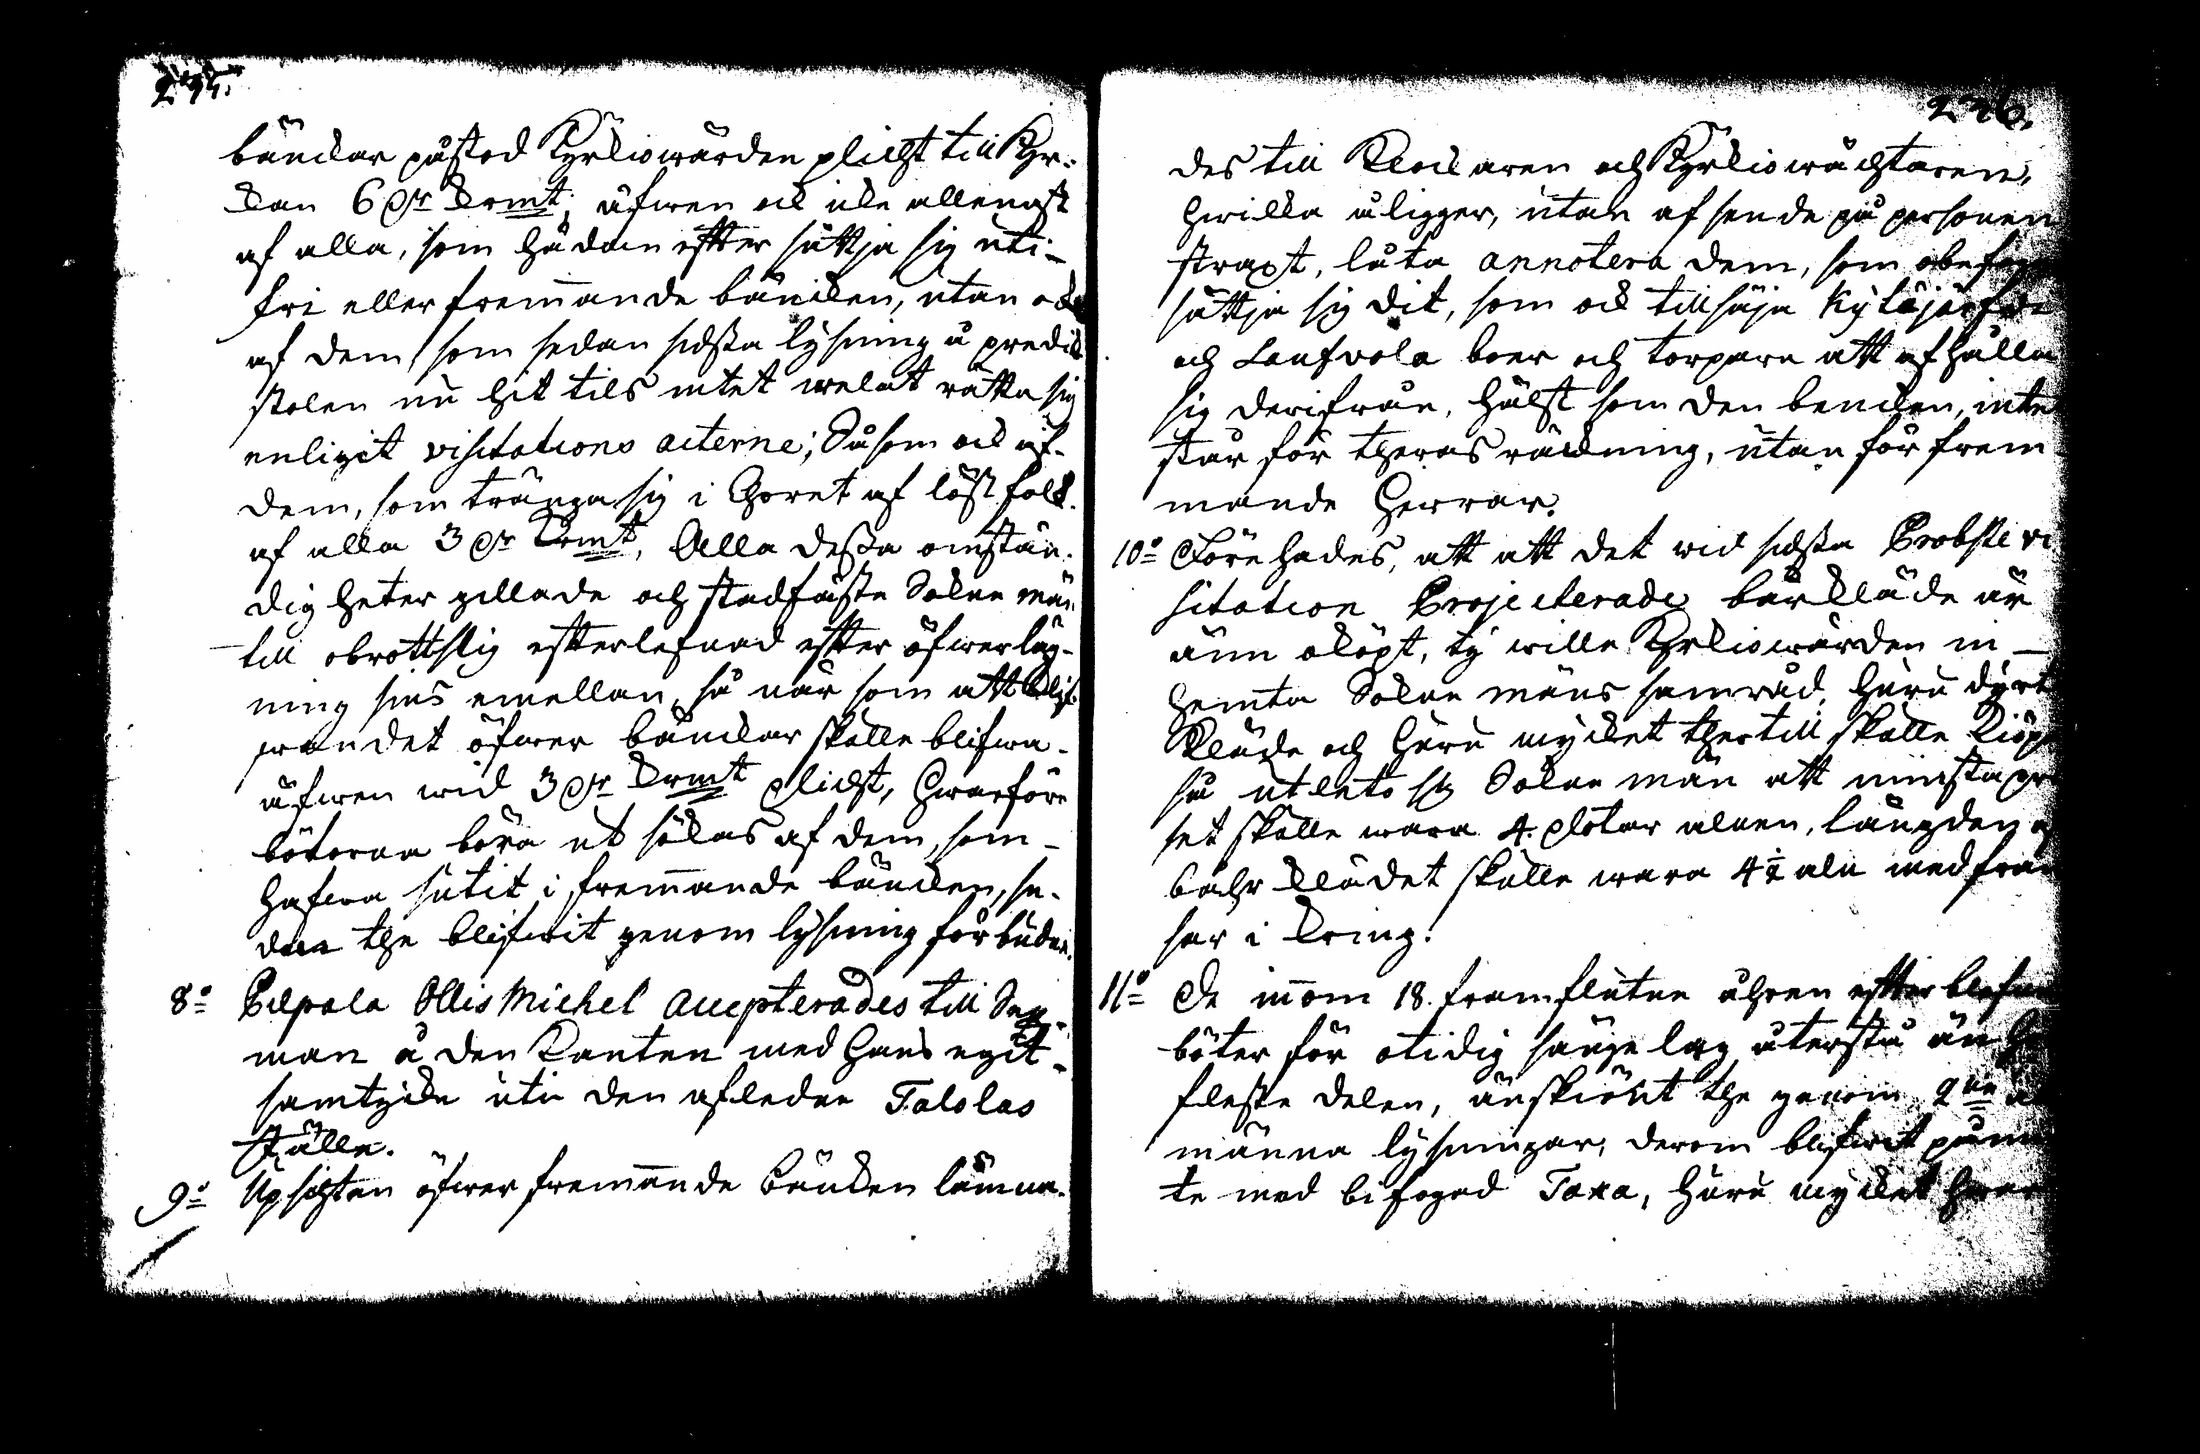 275.
bänckar påstod Kyrkiowärden plicht till Kyr-
kan 6 dr kmt; äfwen ock icke allenast
af alla, som hädan effter sättja sig uti
Fri eller fremande bäncken, utan ock
af dem, som sedan sidsta lysning å predik
stolen nu hit tils intet welat rätta sig
enligit visitations acterne; Såsom ock af
dem, som tränga sig i Choret af löst folck
af alla 3 dr kmt. Alla dessa omstän-
digheter gillade och stadfäste Sokne män
till obrottslig effterlefnad effter öfwerläg-
ning sins emellan, så när som att klif-
wandet öfwer bänckar skulle blifwa
äfwen wid 3 dr kmt plicht, hwarföre
böterna böra ut sökas af dem, som
hafwa sutit i fremande bäncken, se-
dan the blifwit genom lysning förbudne.
8:o Pilpala Ollis Michel accepterades till Sex-
man å den Kanten med hans egit
samtycke uti den afledne Talolas
ställe.
9:o Upsichten öfwer fremande bäncken lämna-
276.
des till Klockaren och Kyrkiowächtaren,
hwilka åligger, utan afseende på personen
straxt, låta annotera dem, som obefogat
sättja sig dit, som ock tillsäja Kytäjärfwi
och Laufvola boer och torpare att afhålla
sig derifrån, hälst som den bencken, inte
står för theras räckning, utan för frem
mande Herrar.
10:o Förehades, att att det wid sidsta Probste vi
sitation Projecterade bårkläde är
änn oköpt, ty wille Kyrkiowärden in
hemta Sokne mäns samråd, huru dyrt
Kläde och huru mycket thertill skulle kiöpas
så utlets sig Sokne män att minsta pri
set skulle wara 4. Plåtar alnen, längden af
båhr klädet skulle wara 4½ aln med fran
sar i kring.
11:o De inom 18. framflutne åhren effterblefne
böter för otidig sängelag återstå än
fleste delen, anskiönt the genom 2ne al
männa lysningar, derom blifwit påmin
te med bifogad Taxa, huru mycket hwar